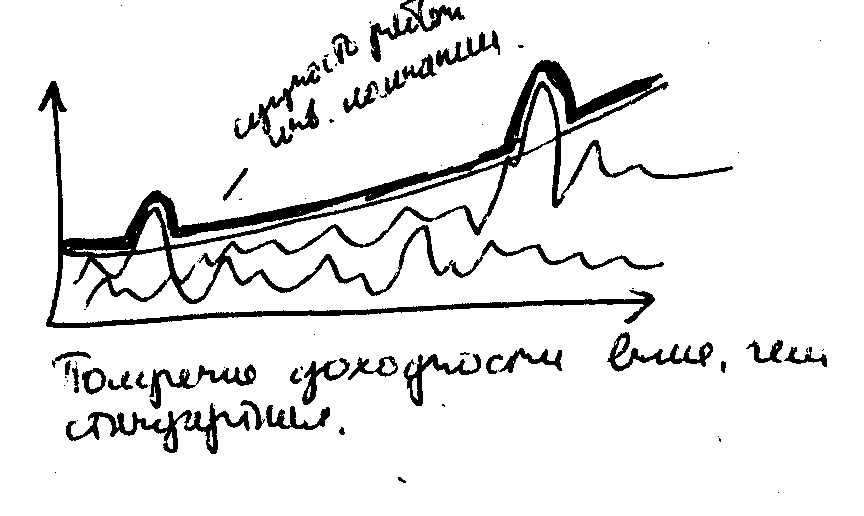 сущность работы
инв. компании.
Получение доходности выше, чем
стандартная.